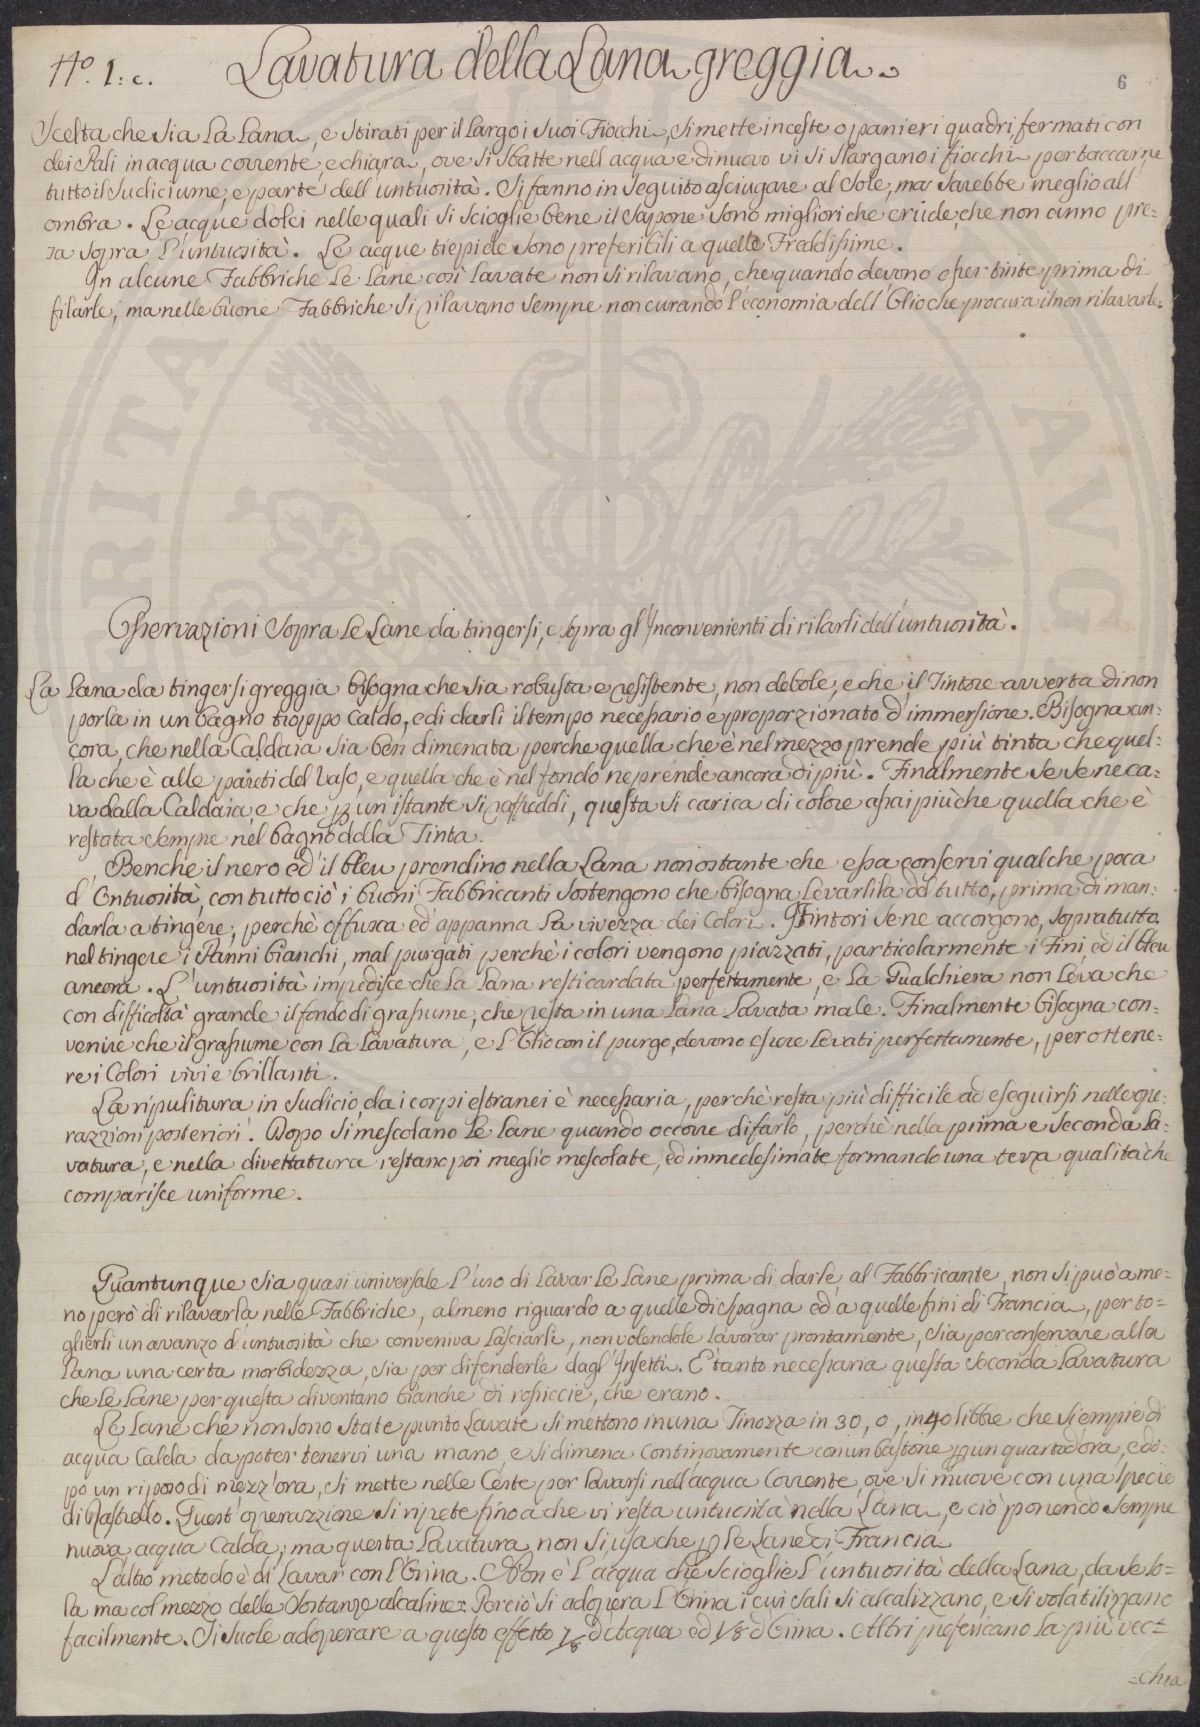 N.º 1: c.
Lavatura della Lana greggia.
6
Scelta che sia La Lana, e stirati per il Largo i suoi Fiocchi, si mette in ceste o panieri quadri fermati con
dei Pali in acqua corrente, e chiara, ove si sbatte nell acqua e di nuovo vi si slargano i fiocchi per staccarne
tutto il sudiciume, e parte dell' untuosità. Si fanno in seguito asciugare al Sole, ma sarebbe meglio all
ombra. Le acque dolci nelle quali si scioglie bene il Sapone sono migliori che crude, che non anno pre=
sa sopra L'untuosità. Le acque tiepide sono preferibili a quelle Freddissime.
In alcune Fabbriche Le Lane così Lavate non si rilavano, che quando devono esser tinte prima di
filarle, ma nelle buone Fabbriche si rilavano sempre non curando l'economia dell' Olio che procura il non rilavarle.
Osservazioni sopra Le Lane da tingersi, e sopra gl'Inconvenienti di rilarli dell'untuosità.
La Lana da tingersi greggia bisogna che sia robusta e resistente, non debole, e che il Tintore avverta di non
porla in un bagno troppo caldo, e di darli il tempo necessario e proporzionato d'immersione. Bisogna an=
cora, che nella Caldaia sia ben dimenata perche quella che è nel mezzo prende più tinta che quel=
la che è alle pareti del Vaso, e quella che è nel fondo ne prende ancora di più. Finalmente se se ne ca=
va dalla Caldaia, e che p un istante si raffreddi, questa si carica di colore assai più che quella che è
restata sempre nel bagno della Tinta.
Benchè il nero ed il bleu prendino nella Lana nonostante che essa conservi qualche poca
d'Ontuosità, con tutto ciò i buoni Fabbricanti sostengono che bisogna Levarsila del tutto, prima di man=
darla a tingere, perchè offusca ed appanna La vivezza dei Colori. I Tintori se ne accorgono, sopratutto
nel tingere i Panni bianchi, mal purgati perchè i colori vengono piazzati, particolarmente i Fini, ed il bleu
ancora. L'untuosità impedisce che La Lana resti cardata perfettamente, e La Gualchiera non Leva che
con difficoltà grande il fondo di grassume, che resta in una Lana Lavata male. Finalmente bisogna con=
venire che il grassume con La Lavatura, e L'Olio con il purgo, devono essere Levati perfettamente, per ottene=
re i Colori vivi e brillanti.
La ripulitura in sudicio, da i corpi estranei è necessaria, perchè resta più difficile ad eseguirsi nelle ope=
razzioni posteriori. Dopo si mescolano Le Lane quando occorre di farlo, perchè nella prima e seconda La=
vatura, e nella divettatura restano poi meglio mescolate, ed inmedesimate formando una terza qualità che
comparisce uniforme.
Quantunque sia quasi universale L'uso di Lavar Le Lane prima di darle al Fabbricante, non si può a me=
no però di rilavarla nelle Fabbriche, almeno riguardo a quelle di Spagna ed a quelle fini di Francia, per to=
glierli un avanzo d'untuosità che conveniva Lasciarli, non volendole Lavorar prontamente, sia per conservare alla
Lana una certa morbidezza, sia per difenderle dagl'Insetti. E' tanto necessaria questa seconda Lavatura
che Le Lane per questa diventano bianche di rossiccie, che erano.
Le Lane che non sono state punto Lavate si mettono in una Tinozza in 30, o, in 40 libbre che si empie di
acqua Calda da poter tenervi una mano, e si dimena continovamente con un bastone p un quarto d'ora, e do=
po un riposo di mezz'ora, si mette nelle Ceste per Lavarsi nell'acqua Corrente, ove si muove con una specie
di Rastrello. Quest' operazzione si ripete fino a che vi resta untuosità nella Lana, e ciò ponendo sempre
nuova acqua Calda; ma questa Lavatura non si usa che p Le Lane di Francia
L'altro metodo è di Lavar con L'Orina. Non è L'acqua che scioglie L'untuosità della Lana, da se so=
la ma col mezzo delle Sostanze alcaline: Perciò si adopera L'Orina i cui Sali si alcalizzano, e si volatilizzano
facilmente. Si suole adoperare a questo effetto 7/8 d'Acqua ed 1/8 d'Orina. Altri preferiscano La più vec=
=chia